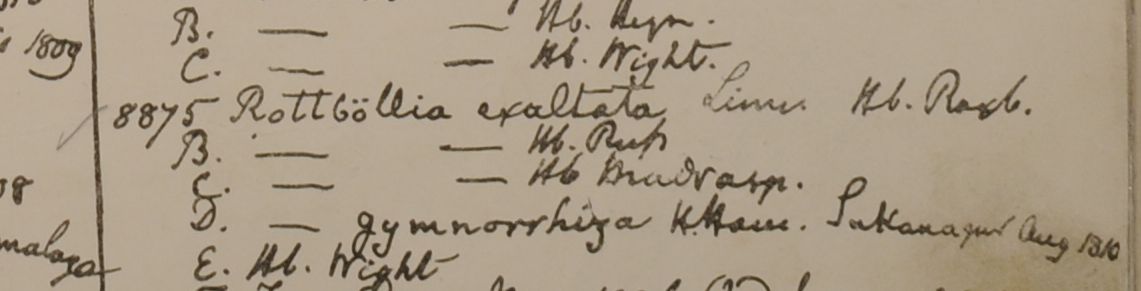 B. — — Hb. Heyn.
1809
C. — — Hb. Wight.
8875 Rottböllia exaltata Linn. Hb. Roxb.
B. — — Hb. Russ
C. — — Hb Madrasp.
D. — gymnorrhiza H.Ham. Aug 1810
E. Hb. Wight